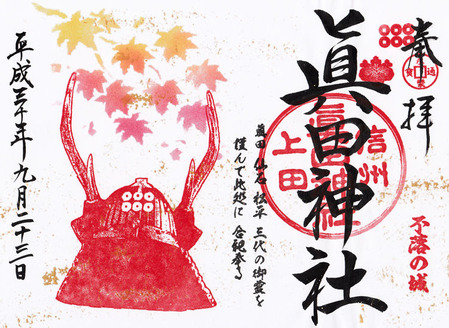 奉拝
不落の城
眞田神社
信州
上田
眞田 仙石 松平 三代の御霊を
謹んで此処に 合祀奉る
平成三十年九月二十三日